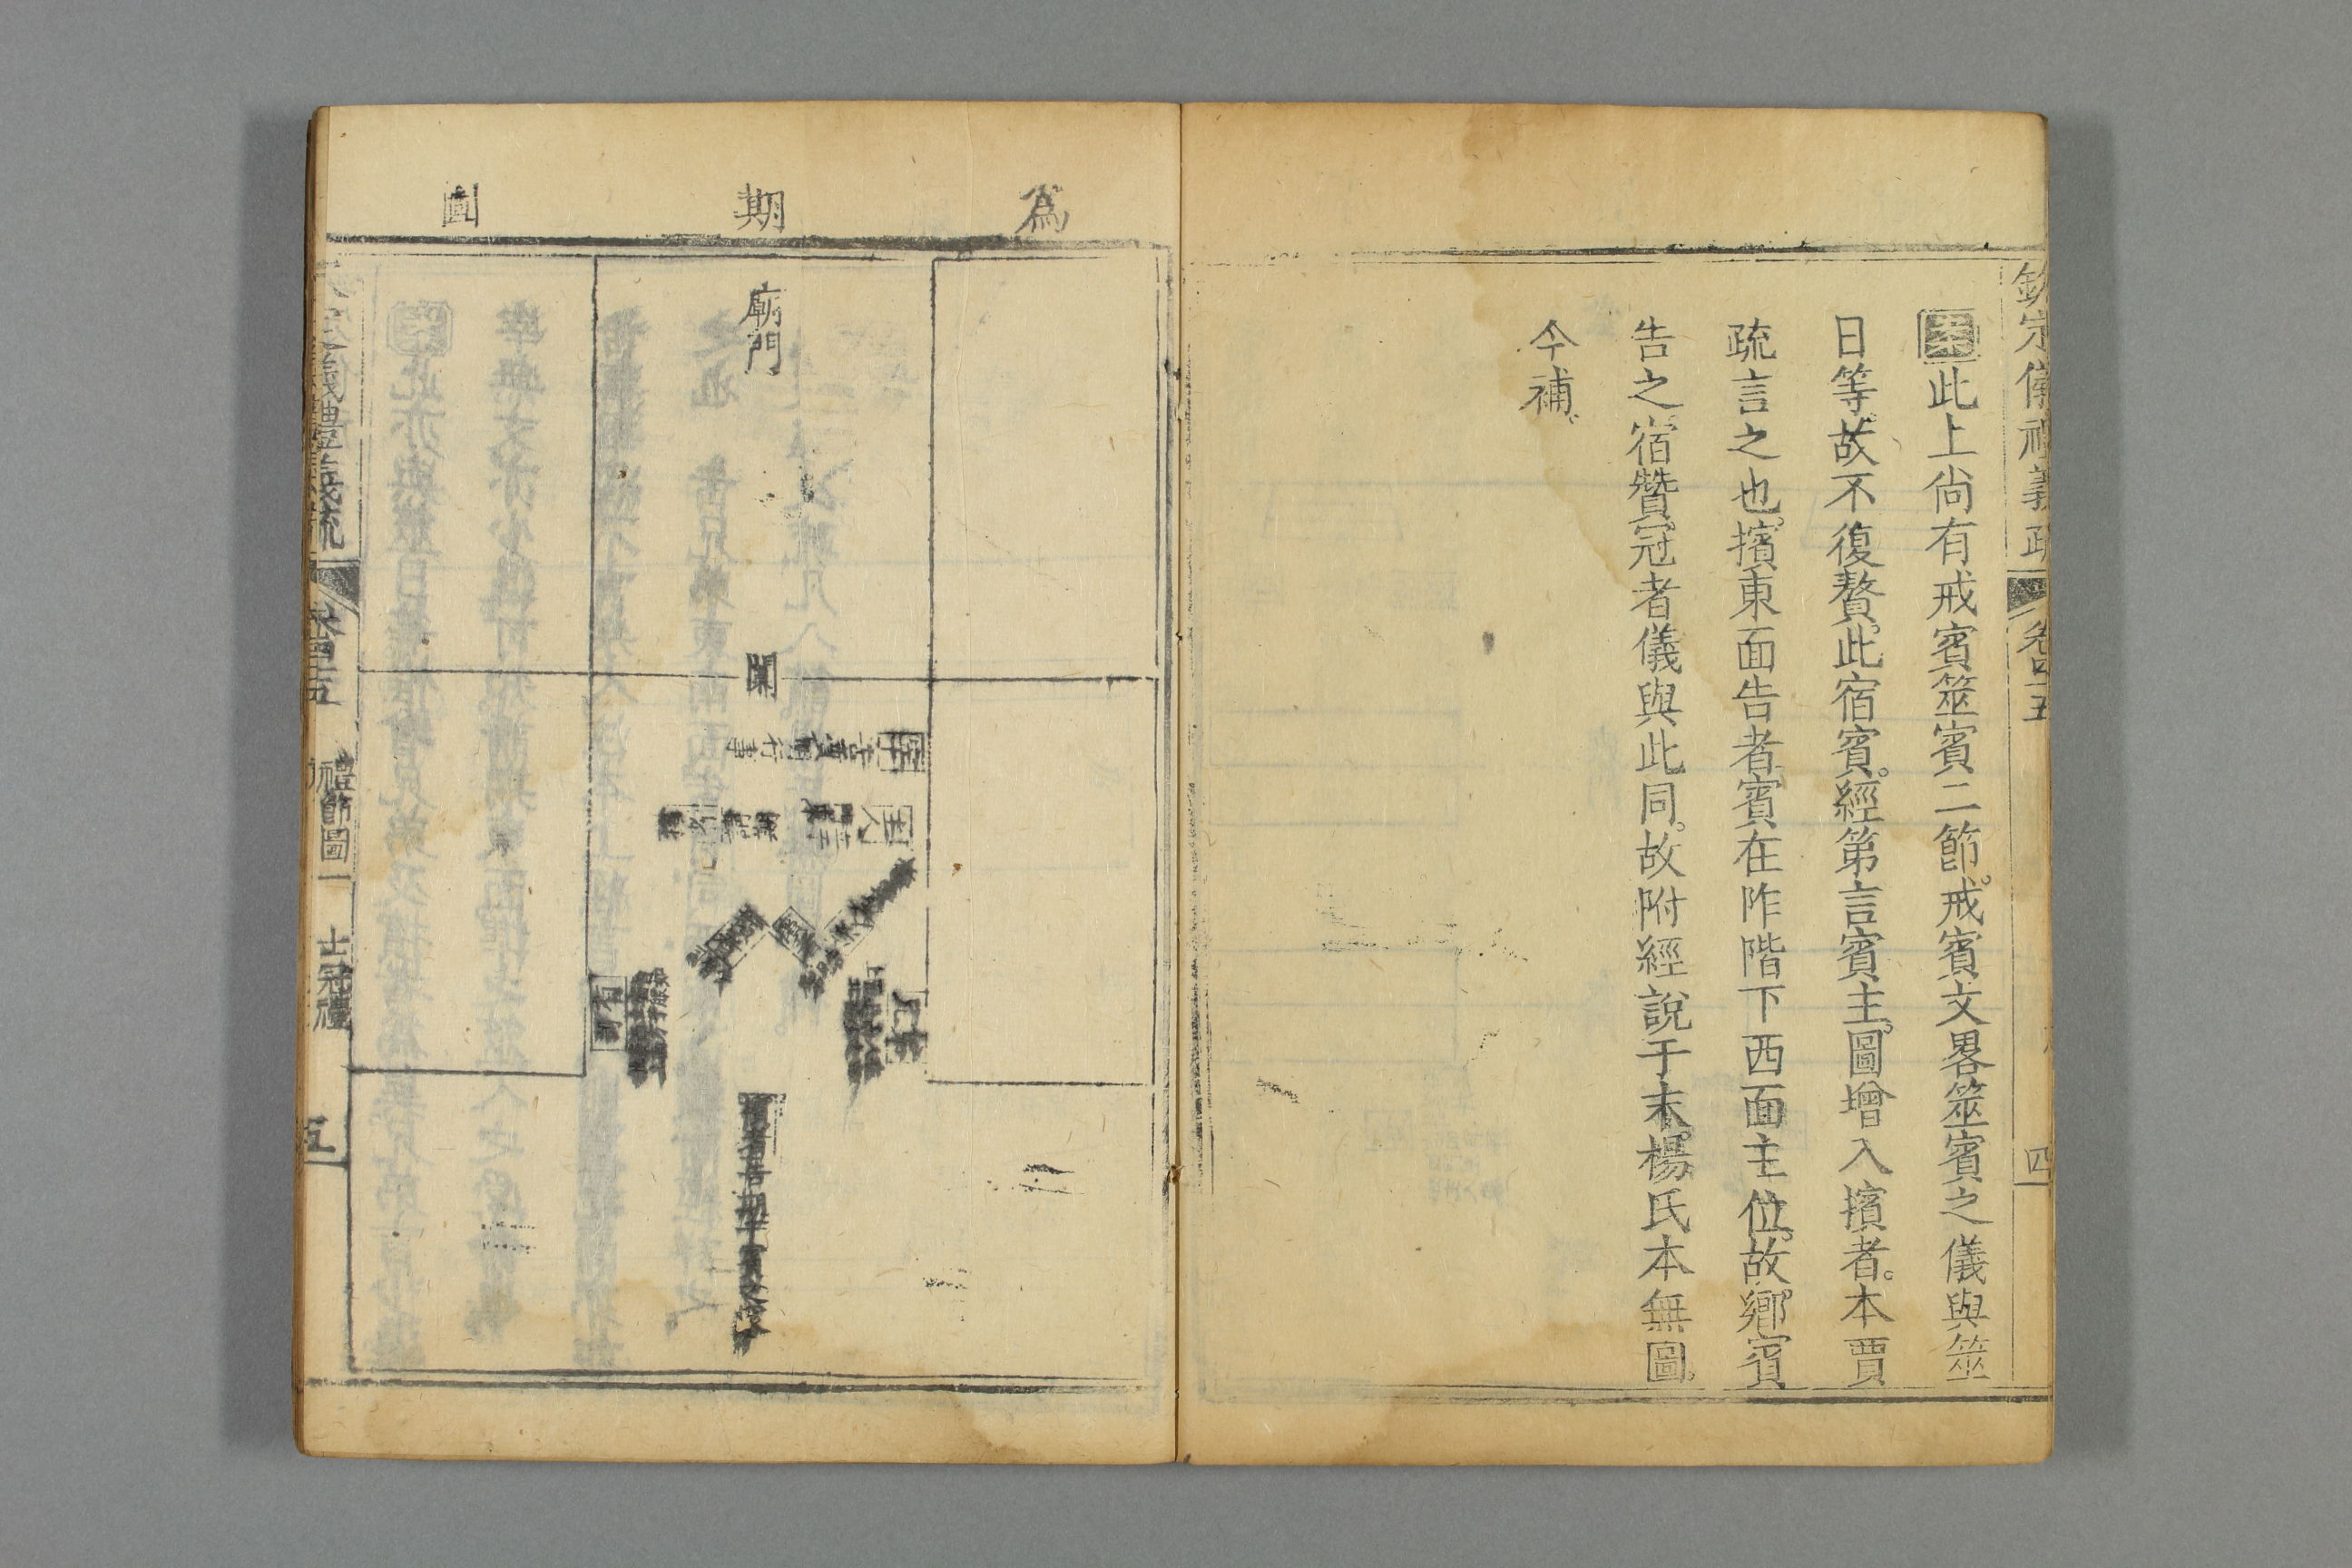 欽定儀禮義疏 卷四十五 四
案此上尙有戒賓筮賓二節。戒賓文畧筮賓之儀與筮
日等。故不復贅。此宿賓。經第言賓主。圖增入擯者。本賈
疏言之也。擯東面告者賓在阼階下西面主位。故鄉賓
告之。宿贊冠者儀與此同。故附經說于末。楊氏本無圖。
今補。
爲期圖
廟門
闑
宰告
行事
主人
兄弟
有司
擯者告期于賓之家
欽定儀禮義疏 卷四十五 禮節圖一 士冠禮 五